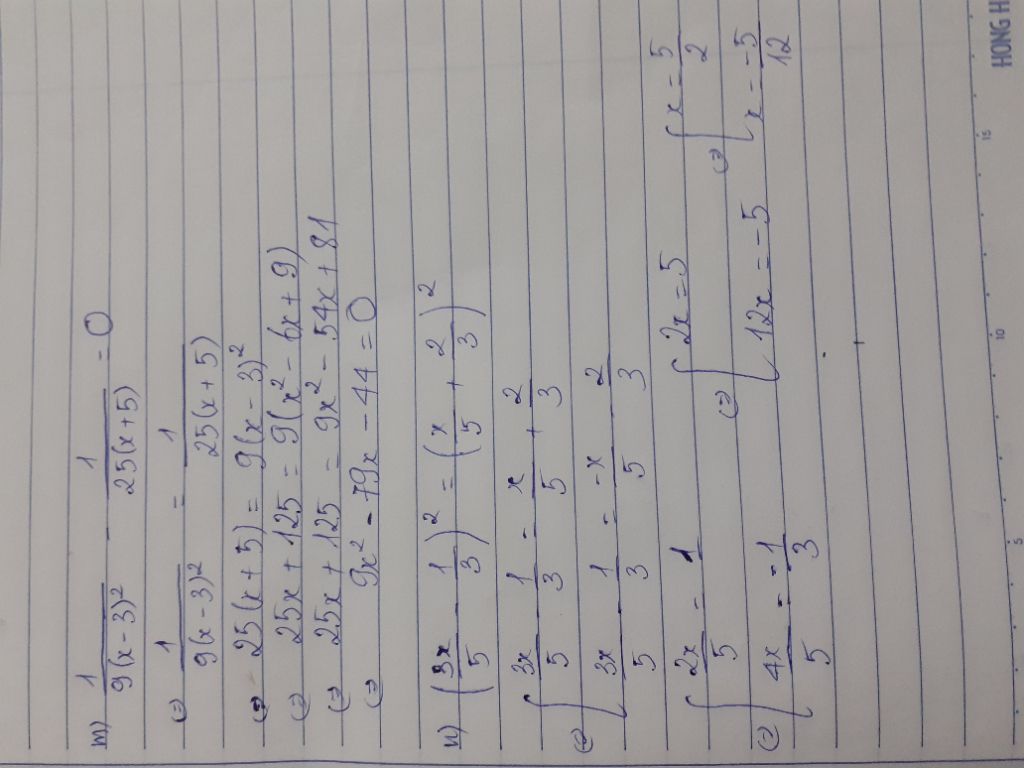 m) 1/9(x-3)² - 1/25(x+5) = 0
(=) 1/9(x-3)² = 1/25(x+5)
(=) 25(x+5) = 9(x-3)²
(=) 25x + 125 = 9(x² - 6x + 9)
(=) 25x + 125 = 9x² - 54x + 81
(=) 9x² - 79x - 44 = 0
n) (3x/5 - 1/3)² = (x/5 + 2/3)²
(=) [ 3x/5 - 1/3 = x/5 + 2/3
3x/5 - 1/3 = -x/5 - 2/3
(=) [ 2x/5 = 1
4x/5 = -1/3
(=) [ 2x = 5
12x = -5
(=) [ x = 5/2
x = -5/12
HONG H
5 10 15